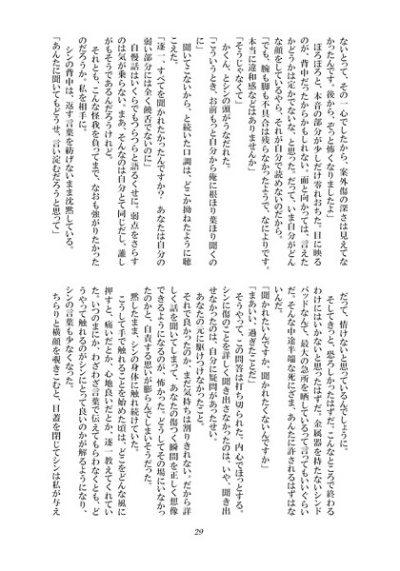 ないとって、その一心でしたから、案外傷の深さは見えてな
かったんです。後から、ぞっと怖くなりましたよ」
　ほろほろと、本音の部分が少しだけ零れおちた。目に映る
のが、背中だったからかもしれない。面と向かっては、言えた
かどうかは定かでないな、と思った。だって、いま自分がどん
な顔をしているやら、それが自分で読めないのだから。
「でも、腕も脚も不具合は残らなかったようで、なによりです。
本当に違和感などはありませんか」
「そうじゃなくて」
　かくん、とシンの頭がうなだれた。
「こういうとき、お前もっと自分から俺に根ほり葉ほり聞くの
に」
　聞いてこないから、と続いた口調は、どこか拗ねたように聴
こえた。
「逐一、すべてを聞かれたかったんですか？　あなたは自分の
弱い部分には全く饒舌でないのに」
　自慢話はいくらでもつらつらと語るくせに。弱点をさらす
のは気が乗らない。まあ、そんなのは自分とて同じだし、誰し
もがそうであるんだろうけれど。
　それとも、こんな怪我を負ってまで、なおも強がりたかった
のだろうか。私を相手に。
　シンの背中は、返す言葉を紡げないまま沈黙している。
「あんたに聞いてもどうせ、言い淀むだろうと思って」
だって、情けないと思っているんでしょうに。
　そしてきっと、恐ろしかったはずだ。こんなところで終わる
わけにはいかないと思ったはずだ。金属器を持たないシンド
バッドなんて、最大の急所を晒しているって言ってもいいぐらい
だ。そんな中途半端な死にざま、あんたに許されるはずはな
いんだ。
「聞かれたいんですか、聞かれたくないんですか」
「まあいい、過ぎたことだ」
　そうやって、この問答は打ち切られた。内心でほっとする。
シンに傷のことを詳しく聞き出さなかったのは、いや、聞き出
せなかったのは、自分に疑問があったせい。
　あなたの元に駆けつけなかったこと。
　それで良かったのか、まだ気持ちは割りきれない。だから詳
しく話を聞いてしまって、あなたの傷つく瞬間を正しく想像
できるようになるのが、怖かった。どうしてその場にいなかっ
たのかと、自責する思いが膨らんでしまいそうだった。
　黙ったまま、シンの身体に触れ続けていた。
　こうして手で触れることを始めた頃は、どこをどんな風に
押すと、痛いだとか、心地良いだとか、逐一教えてくれてい
た。いつのまにか、わざわざ言葉で伝えてもらわなくとも、ど
うやって触れるのがシンにとって良いのかが解るようになり、
シンの言葉も少なくなった。
　ちらりと横顔を覗きこむと、目蓋を閉じてシンは私が与え
29